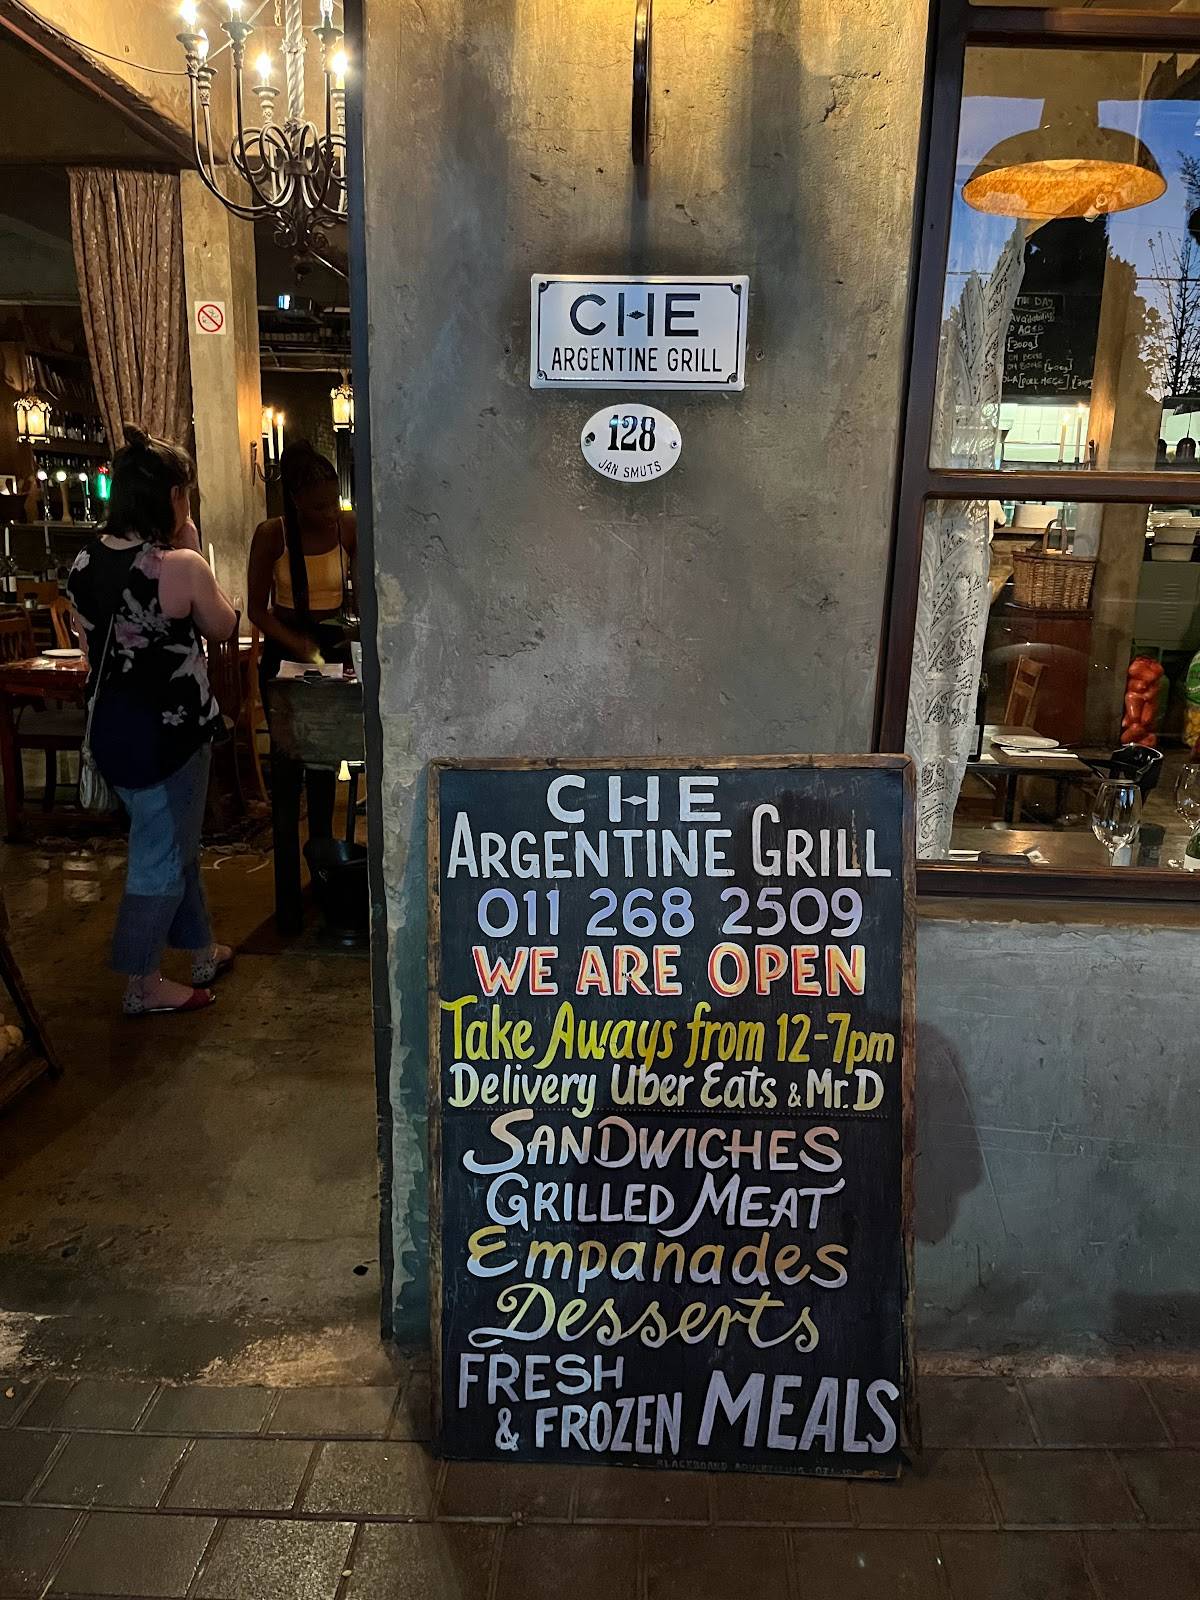 CHE
ARGENTINE GRILL
128
JAN SMUTS
CHE
ARGENTINE GRILL
011 268 2509
WE ARE OPEN
Take Aways from 12-7pm
Delivery Uber Eats & Mr. D
SANDWICHES
GRILLED MEAT
Empanades
Desserts
FRESH
& FROZEN MEALS
BLACKBOARD ADVERTISING
DAY
Availability
[300g]
ON BONE
ON BONE [400g]